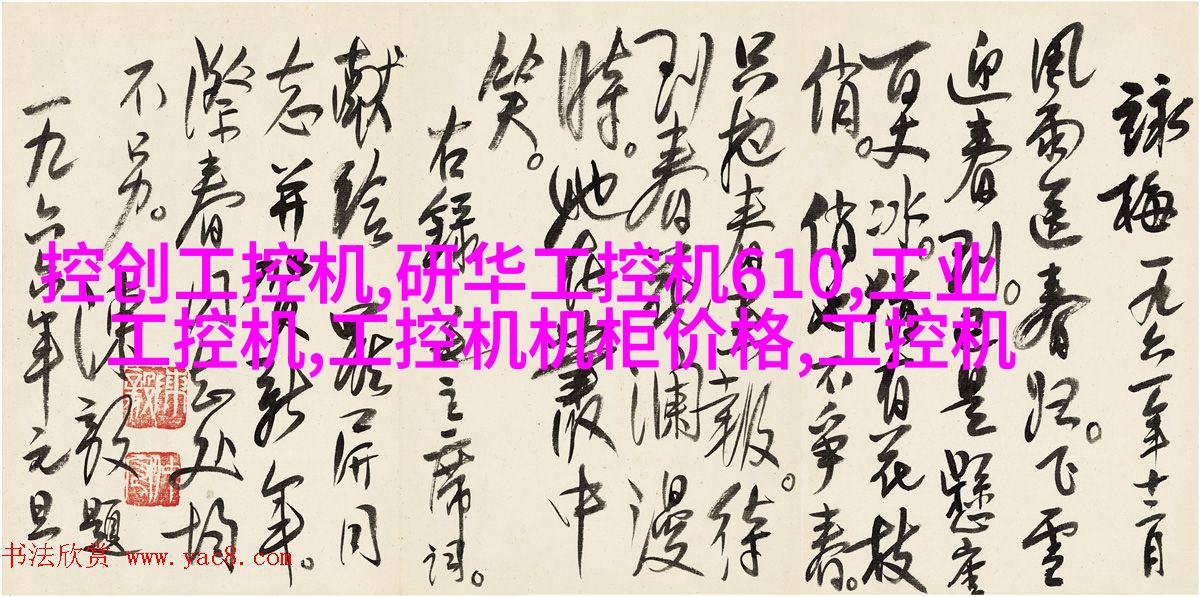 詠梅 一九六一年十二月
风雨送春归。飞雪
迎春到。已是懸崖
百丈冰。犹有花枝
俏。俏也不争春。
只抱春来报。待
到春 澜漫
時。她在丛中
笑。
右錄 主席词。
献给 同
志并 新年。
春 处均
不另。 毅题
一九六六年元旦
控创工控机,研华工控机610,工业
工控机,工控机机柜价格,工控机
书法欣赏 www.yac8.com